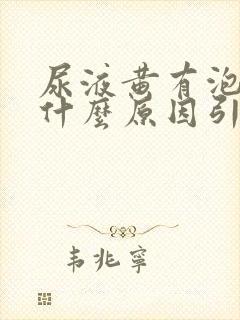 尿液黄有泡
什麼原因引
韦兆寧